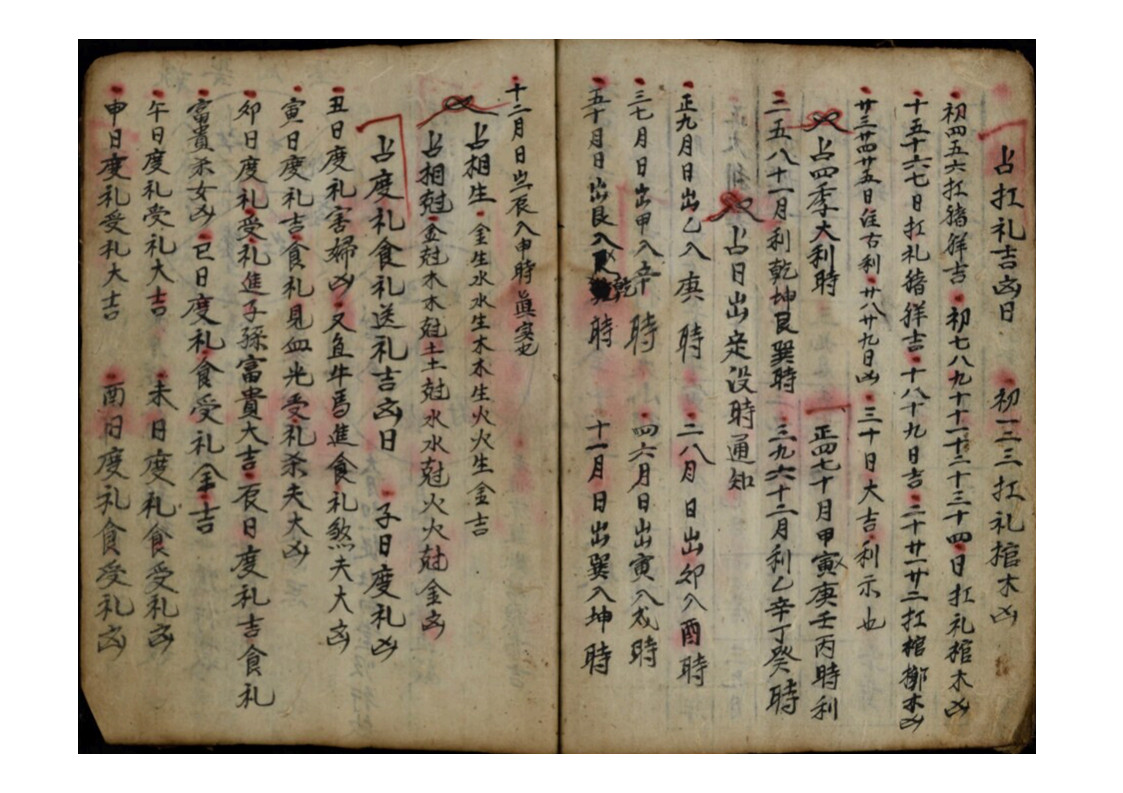 占扛礼吉凶日 初一二三扛礼棺木凶
初四五六扛猪牂吉初七八九十十一十二十三十四日扛礼棺木凶
十五十六七日扛礼猪牂吉十八十九日吉二十廿一廿二扛棺木凶
廿三廿四廿五日往古利廿八廿九日凶三十日大吉利示也
占四季大利時 正四七十月甲寅庚壬丙時利
二五八十一月利乾坤艮巽時三九六十二月利乙辛丁癸時
占日出定没時通知
正九月日出乙入庚時 二八月日出卯入酉時
三七月日出甲入辛時 四六月日出寅入戌時
五十月日出艮入乾時 十一月日出巽入坤時
十二月日出辰入申時眞寔
占相生金生水水生木木生火火生金吉
占相尅金尅木木尅土土尅水水尅火火尅金凶
占度礼食礼送礼吉凶日 子日度礼凶
丑日度礼害婦凶又魚牛馬進食礼煞夫大凶
寅日度礼吉食礼見血光受礼杀夫大凶
卯日度礼受礼進子孫富貴大吉辰日度礼吉食礼
富貴杀女凶巳日度礼食受礼全吉
午日度礼受礼大吉 未日度礼食受礼凶
申日度礼受礼大吉 酉日度礼食受礼凶